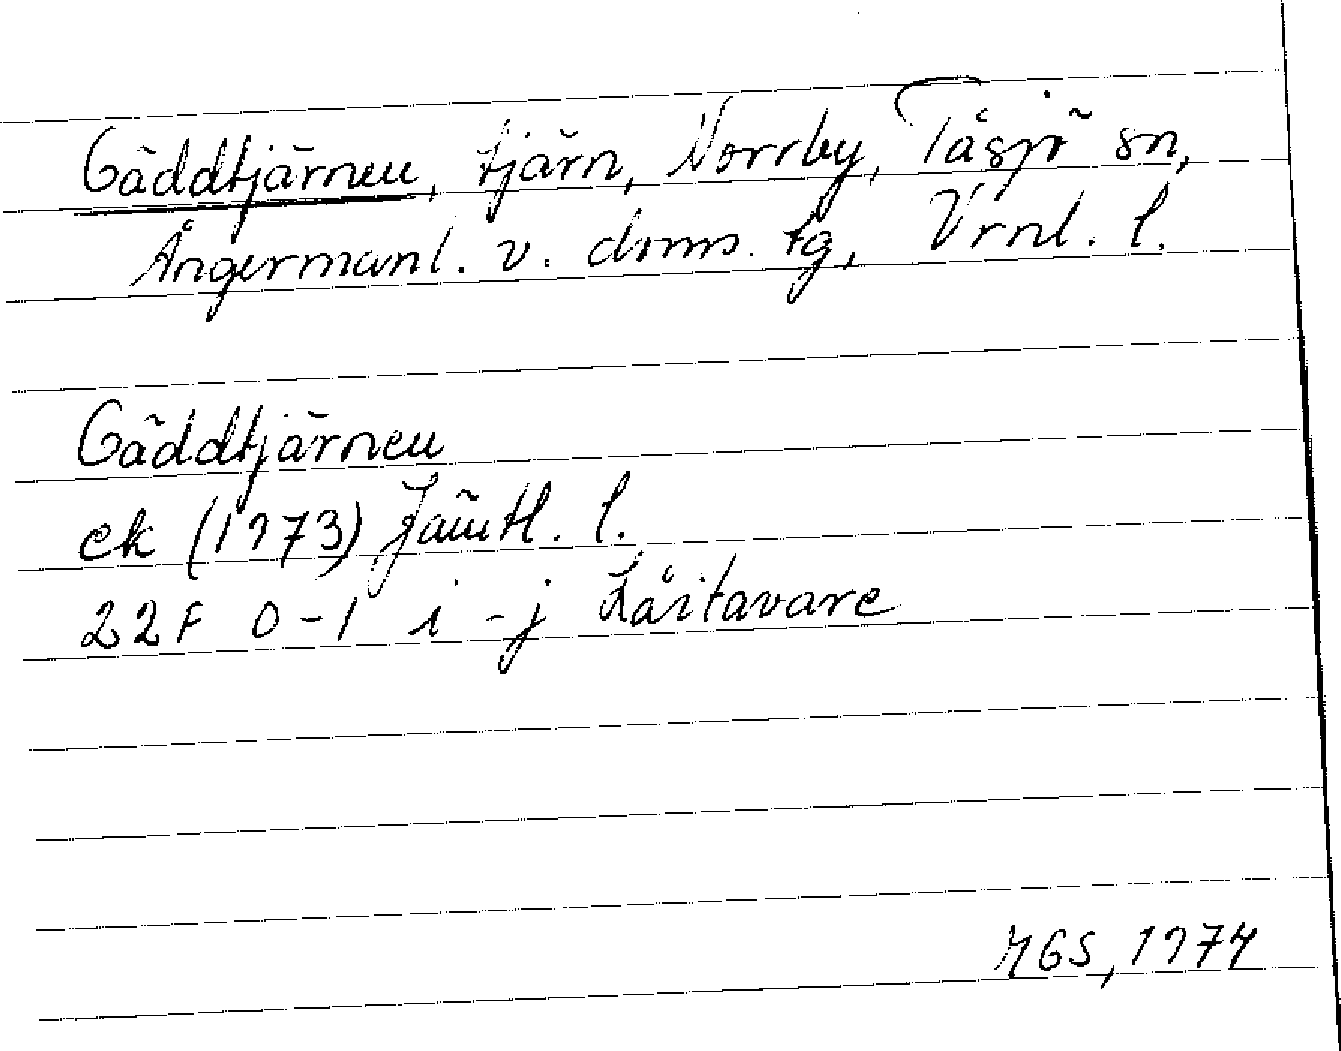 Gäddtjärnen, tjärn, Norrby, Tåsjö sn,
Ångermanl. v. doms. tg, Vrnl. l.
Gäddtjärnen
ek (1973) Jämtl. l.
22F 0-1 i-j Låitavare
MGS, 1974